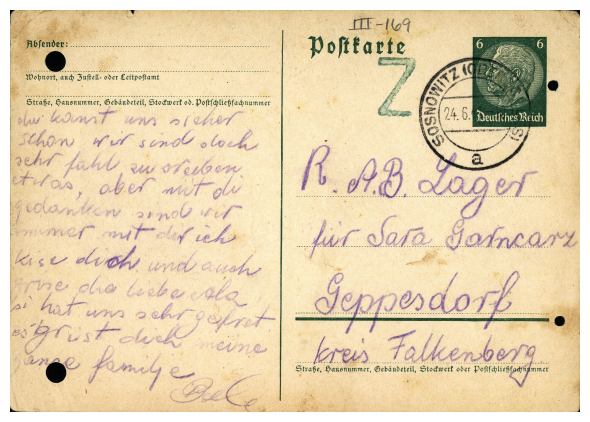 III-169
Absender:
Wohnort, auch Zustell- oder Leitpostamt
Straße, Hausnummer, Gebäudeteil, Stockwerk od. Postschließfachnummer
du kanst uns sicher
schon wir sind doch
sehr fahl zu
etwas, aber mit di
gedanken sind wir
immer mit dir ich
kise dich und auch
grise die liebe
si hat uns sehr gefret
es grist dich meine
ganse familje
Postkarte
Z
6 6
Deutsches Reich
SOSNOWITZ
24.6.
a
R.A.B. Lager
für Sara Garncarz
Geppesdorf
kreis Falkenberg
Straße, Hausnummer, Gebäudeteil, Stockwerk oder Postschließfachnummer